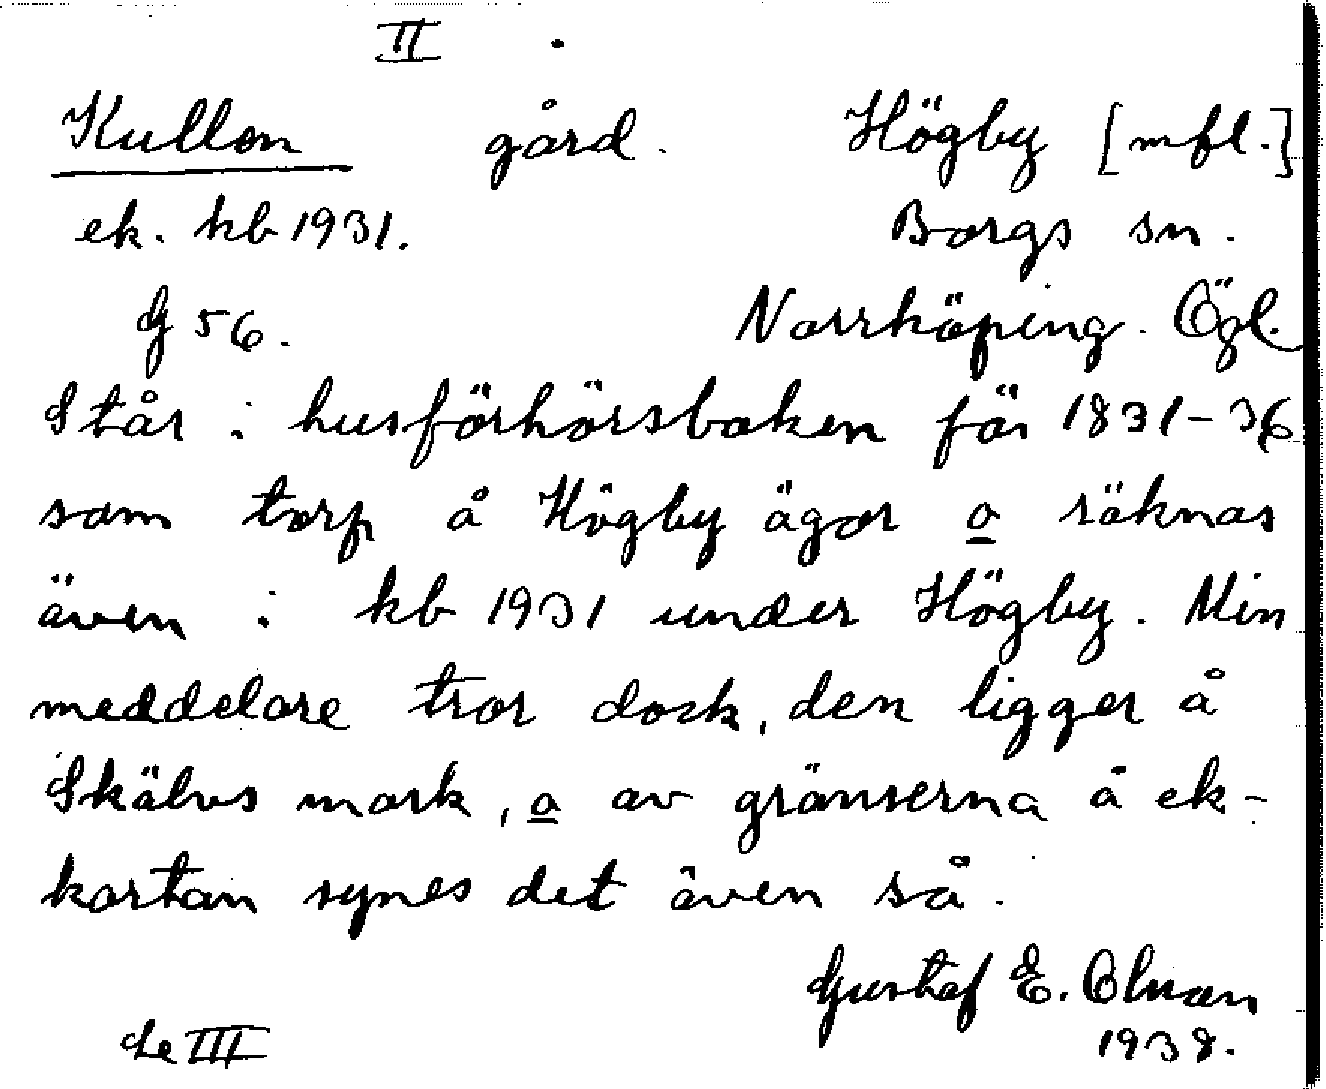 II
Kullen gård. Högby [mfl.]
ek. kb 1931. Borgs sn.
G 56. Norrköping. Ögl.
Står i husförhörsboken för 1831-36
som torp å Högby ägor o räknas
även i kb 1931 under Högby. Min
meddelare tror dock, den ligger å
Skälvs mark, o av gränserna å ek-
kartan synes det även så.
Gustaf E. Olman
1938.
de III